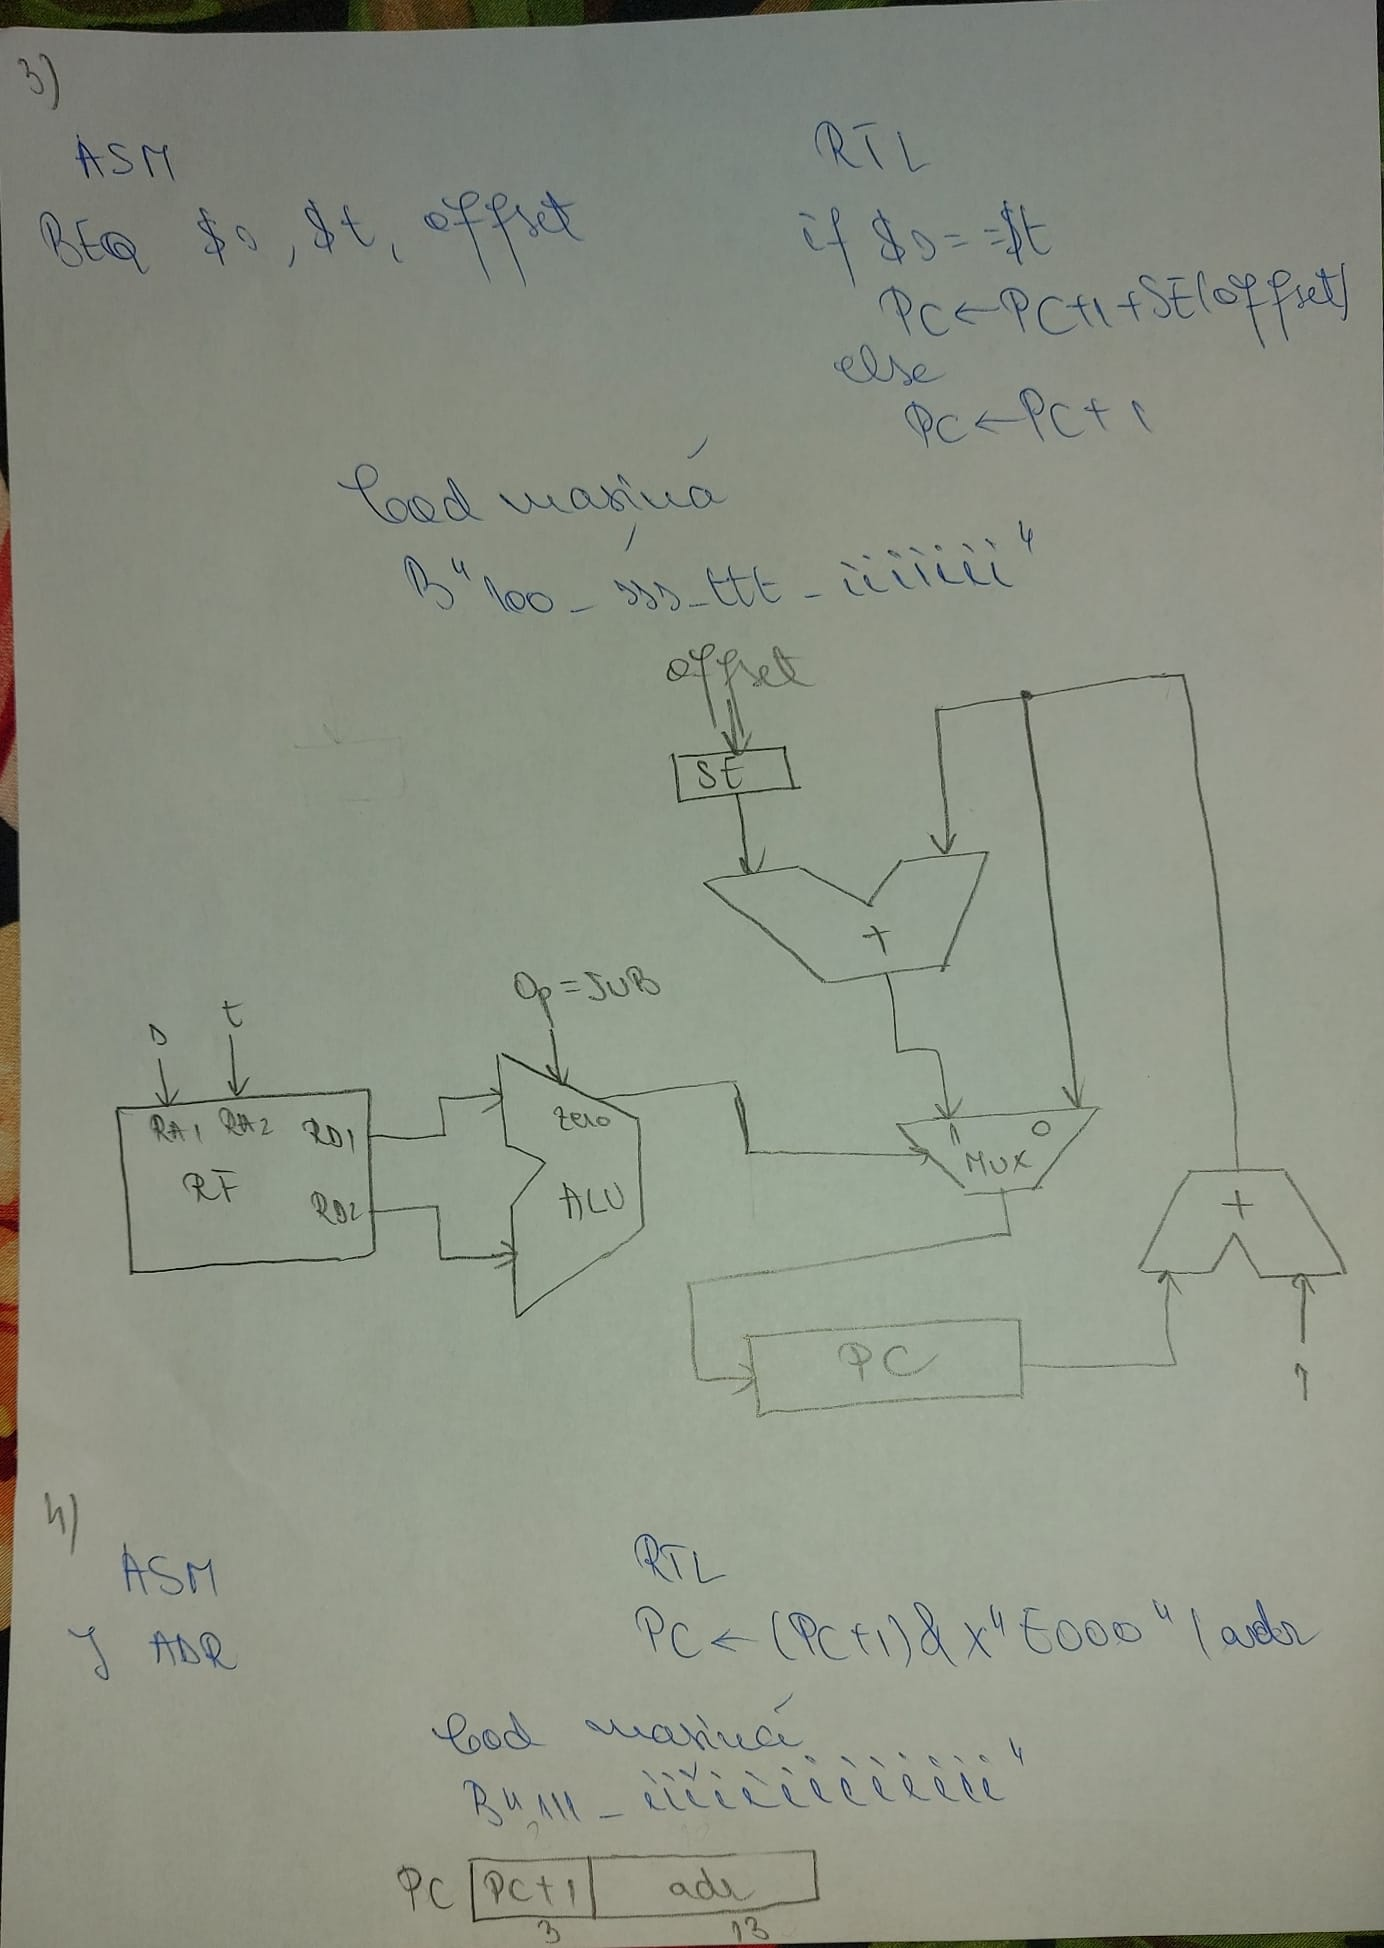 3)
ASM
RTL
BEQ $s, $t, offset
if $s==$t
PC←PC+1+SE(offset)
else
PC←PC+1
Cod mașină
B"100_sss_ttt_iiiiiii"
offset
SE
+
Op=SUB
s t
RA1 RA2 RD1
RF
RD2
zero
ALU
1 0
MUX
+
PC
1
4)
ASM
RTL
J ADR
PC←(PC+1)&x"E000"|adr
Cod mașină
B"111_iiiiiiiiiiiii"
PC PC+1 adr
3 13